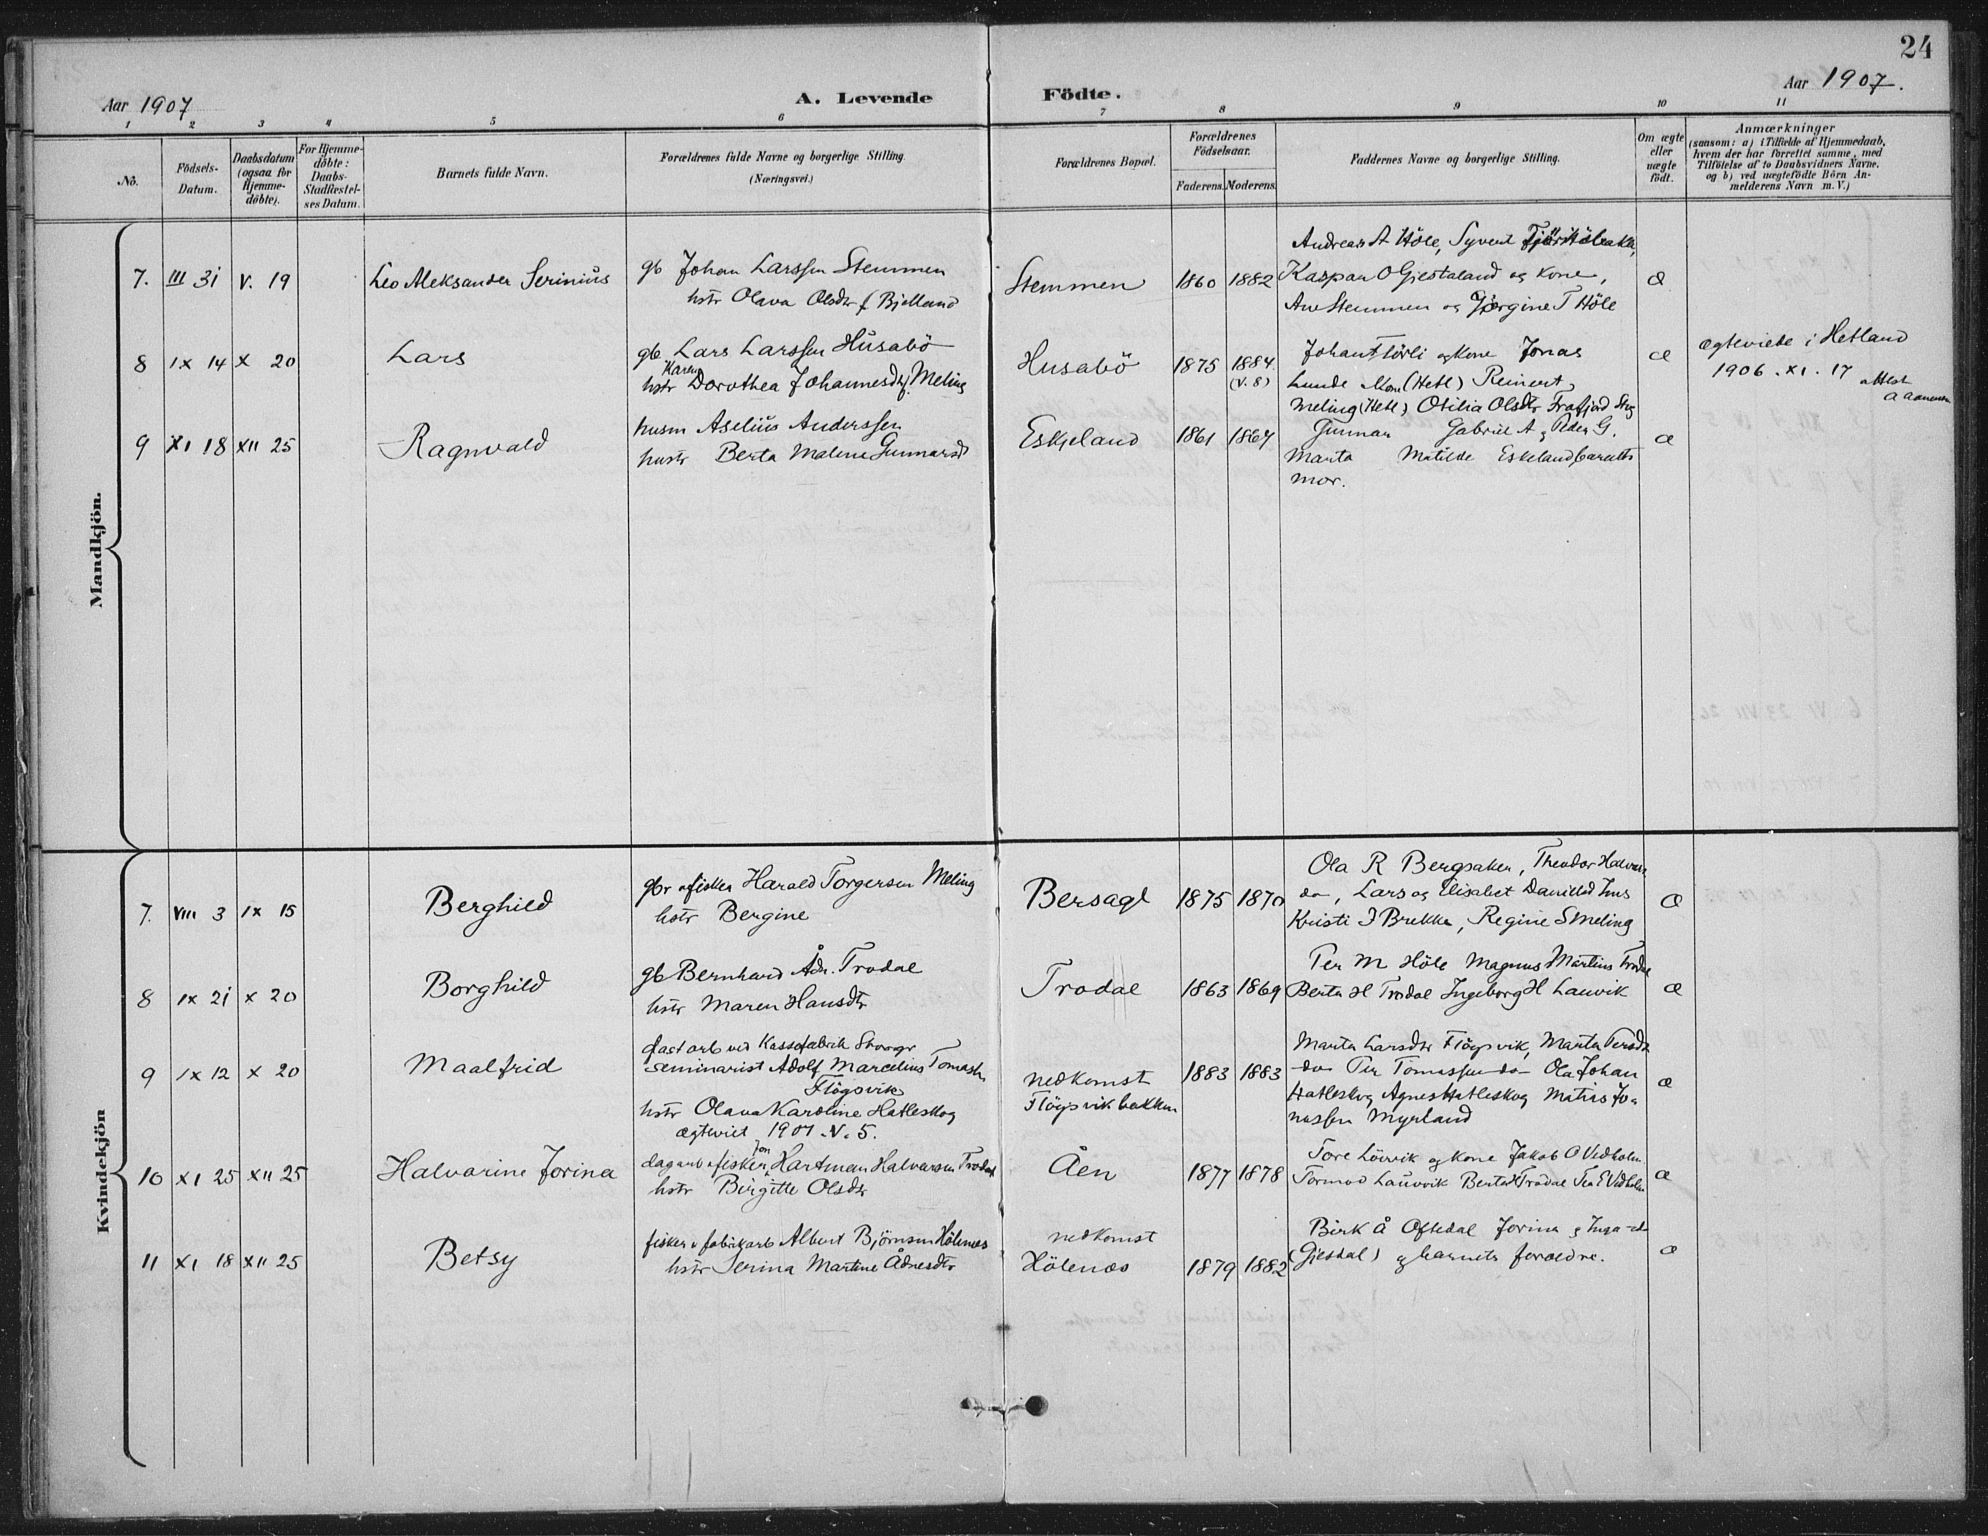 24
Aar 1907
A. Levende Födte.
Aar 1907.
1 2 3 4 5 6 7 8 9 10 11
No.
Födsels-Datum.
Daabsdatum (ogsaa for Hjemme-döbte).
For Hjemme-döbte: Daabs-Stadfæstel-ses Datum.
Barnets fulde Navn.
Forældrenes fulde Navne og borgerlige Stilling.
(Næringsvei.)
Forældrenes Bopæl.
Forældrenes Födselsaar.
Faderens. Moderens.
Faddernes Navne og borgerlige Stilling.
Om ægte eller uægte födt.
Anmærkninger
(saasom: a) i Tilfælde af Hjemmedaab,
hvem der har forrettet samme, med
Tilföielse af to Daabsvidners Navne,
og b) ved uægtefödte Börn An-
melderens Navn m. V.)
Mandkjön.
7. III 31 V. 19 Leo Aleksander Serinius
gb Johan Larssen Stemmen
hstr Olava Olsdtr f Bjelland
Stemmen 1860 1882
Andreas A Höle, Syvert
Kaspar O Gjestaland og kone,
Ane Stemmen og Jörgine T Höle
æ
8 IX 14 X 20 Lars
gb Lars Larssen Husabö
hstr Karen Dorothea Johannesdtr f. Meling
Husabö 1875 1884 (V. 8)
Johan Törli og kone Jonas
Lunde Kone (Hetl) Reinert
Meling (Hetl) Otilia Olsdtr Frafjord Stvg
æ
ægteviede i Hetland
1906. XI. 17 attest
9 XI 18 XII 25 Ragnvald
husm Aselius Anderssen
hustr Berta Malene Gunnarsd
Eskeland 1861 1867
Gunnar Gabriel A og Peder G.
Marta Matilde Eskeland barnets
mor.
æ
Kvindekjön
7. VIII 3 IX 15 Berghild
gbr & fisker Harald Torgersen Meling
hstr Bergine
Bersagl 1875 1870
Ola R Bergsaker, Theodor
do, Lars og Elisabet Danielsd
Kristi I Brekke, Regine S Meling
æ
8 IX 21 X 20 Borghild
gb Bernhard Ådn. Trodal
hstr Maren Hansdtr
Trodal 1863 1869
Per M Höle Magnus Martinus Trodal
Berta H Trodal Ingeborg H Lauvik
æ
9 IX 12 X 20 Maalfrid
fastarb ved Kassefabrik Stvangr
seminarist Adolf Marcelius Tomass
Flögsvik
hstr Olava Karoline Hatleskog
ægteviet 1907. V. 5.
nedkomst
Flögsvikbakken 1883 1883
Marta Larsdtr Flögsvik, Marta Persdtr
do Per Tomassen do Ola Johan
Hatleskog Agnes Hatleskog Matias Jo-
nassen Myrland
æ
10 XI 25 XII 25 Halvarine Jorina
dagarb & fisker Jon Hartman Halvorsen Trodal
hstr Birgitte Olsdtr
Åen 1877 1878
Tore Löivik og kone Jakob O Vedholm
Tormod Lauvvik Berta Trodal Tea E Vedholm
æ
11 XI 18 XII 25 Betsy
fisker & fabrikarb Albert Björnsen Hölenes
hstr Serina Martine Ådnesdtr
nedkomst
Hölenæs 1879 1882
Birk Å Oftedal Jorina & Inga do
(Gjesdal) og barnets forældre.
æ